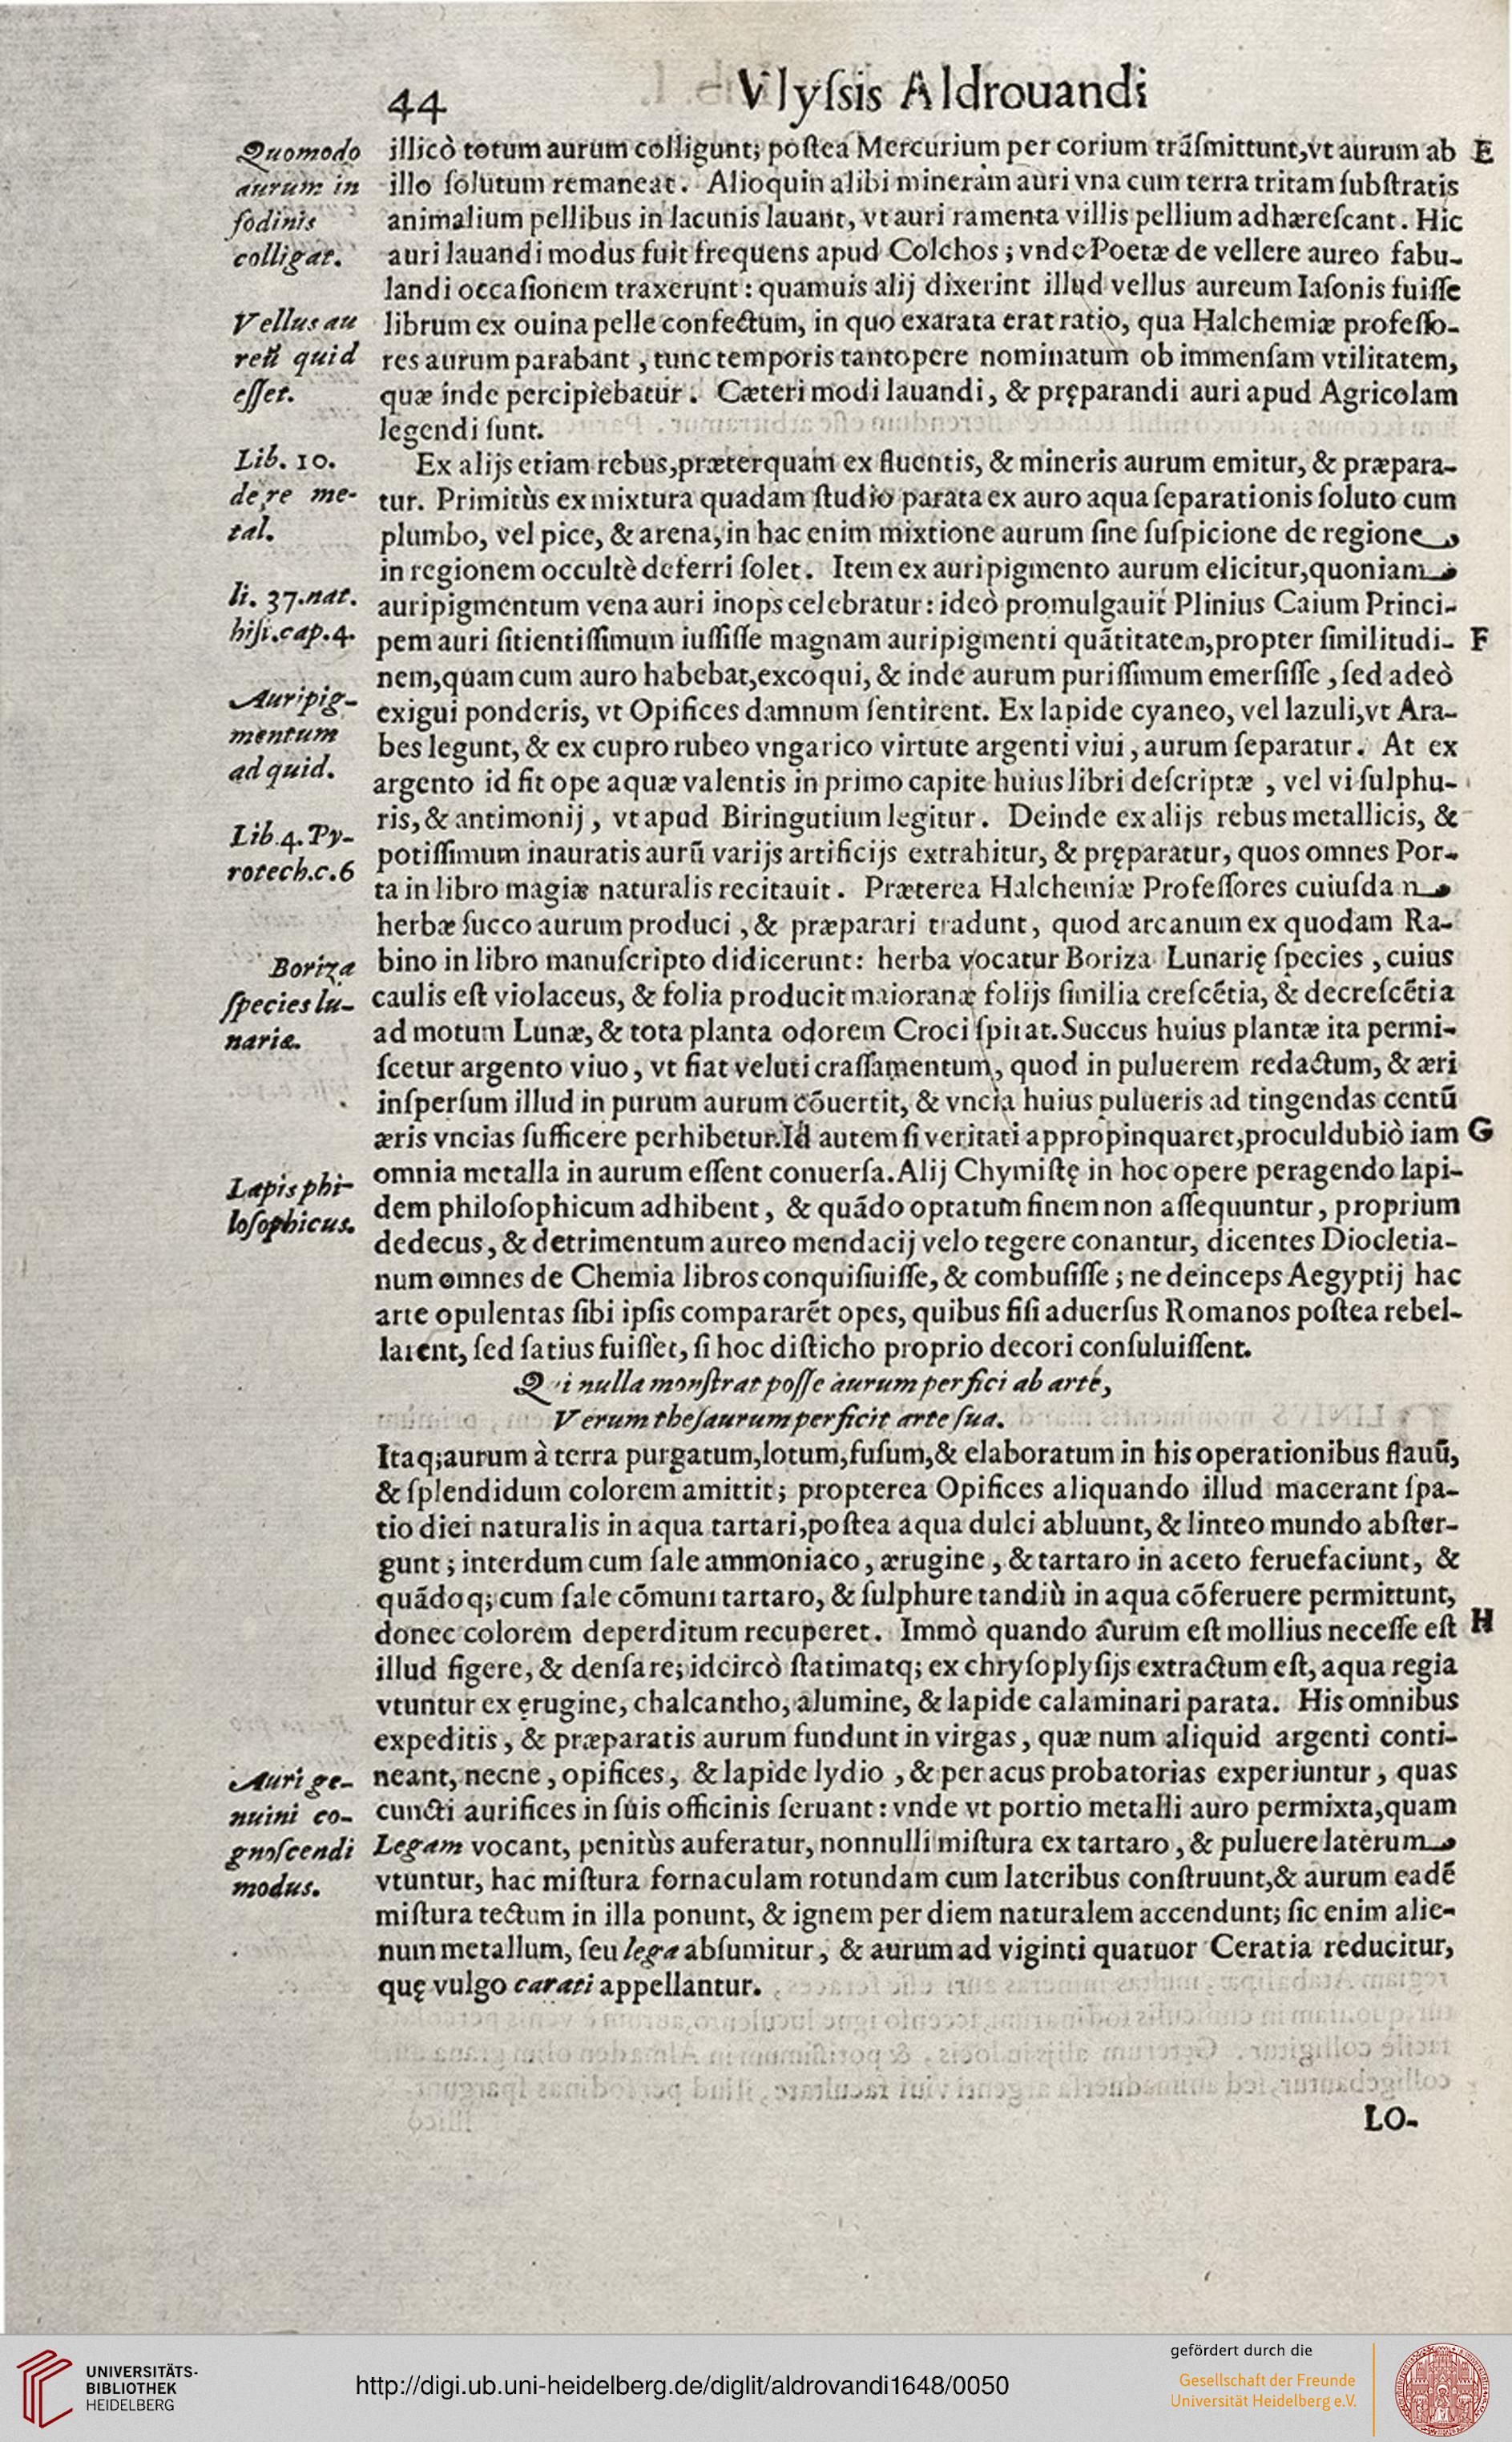 44
Vlyſsis Aldrouandi
Quomodo
aurum in
fodinis
colligat.
Vellus au
reū quid
eſſet.
Lib. 10.
de re me-
tal.
li. 37.nat.
hiſt.cap.4.
Auripig-
mentum
ad quid.
Lib.4.Py-
rotech.c.6
Boriza
ſpecies lu-
nariæ.
Lapis phi-
loſophicus.
Auri ge-
nuini co-
gnoſcendi
modus.
illicò totum aurum colligunt; poſtea Mercurium per corium trāſmittunt,vt aurum ab E
illo ſolutum remaneat. Alioquin alibi mineram auri vna cum terra tritam ſubſtratis
animalium pellibus in lacunis lauant, vt auri ramenta villis pellium adhæreſcant. Hic
auri lauandi modus fuit frequens apud Colchos; vnde Poetæ de vellere aureo fabu-
landi occaſionem traxerunt: quamuis alij dixerint illud vellus aureum Iaſonis fuiſſe
librum ex ouina pelle confectum, in quo exarata erat ratio, qua Halchemiæ profeſſo-
res aurum parabant, tunc temporis tantopere nominatum ob immenſam vtilitatem,
quæ inde percipiebatur. Cæteri modi lauandi, & pręparandi auri apud Agricolam
legendi ſunt.
Ex alijs etiam rebus,præterquam ex fluentis, & mineris aurum emitur, & præpara-
tur. Primitùs ex mixtura quadam ſtudio parata ex auro aqua ſeparationis ſoluto cum
plumbo, vel pice, & arena, in hac enim mixtione aurum ſine ſuſpicione de regione
in regionem occultè deferri ſolet. Item ex auripigmento aurum elicitur,quoniam
auripigmentum vena auri inops celebratur: ideò promulgauit Plinius Caium Princi-
pem auri ſitientiſſimum iuſſiſſe magnam auripigmenti quātitatem,propter ſimilitudi- F
nem,quam cum auro habebat,excoqui, & inde aurum puriſſimum emerſiſſe, ſed adeò
exigui ponderis, vt Opifices damnum ſentirent. Ex lapide cyaneo, vel lazuli,vt Ara-
bes legunt, & ex cupro rubeo vngarico virtute argenti viui, aurum ſeparatur. At ex
argento id fit ope aquæ valentis in primo capite huius libri deſcriptæ, vel vi ſulphu-
ris, & antimonij, vt apud Biringutium legitur. Deinde ex alijs rebus metallicis, &
potiſſimum inauratis aurū varijs artificijs extrahitur, & pręparatur, quos omnes Por-
ta in libro magiæ naturalis recitauit. Præterea Halchemiæ Profeſſores cuiuſdam
herbæ ſucco aurum produci, & præparari tradunt, quod arcanum ex quodam Ra-
bino in libro manuſcripto didicerunt: herba vocatur Boriza Lunarię ſpecies, cuius
caulis eſt violaceus, & folia producit maioranæ folijs ſimilia creſcētia, & decreſcētia
ad motum Lunæ, & tota planta odorem Croci ſpirat.Succus huius plantæ ita permi-
ſcetur argento viuo, vt fiat veluti craſſamentum, quod in puluerem redactum, & æri
inſperſum illud in purum aurum cōuertit, & vncia huius pulueris ad tingendas centū
æris vncias ſufficere perhibetur.Id autem ſi veritati appropinquaret,proculdubiò iam G
omnia metalla in aurum eſſent conuerſa.Alij Chymiſtę in hoc opere peragendo lapi-
dem philoſophicum adhibent, & quādo optatum finem non aſſequuntur, proprium
dedecus, & detrimentum aureo mendacij velo tegere conantur, dicentes Diocletia-
num omnes de Chemia libros conquiſiuiſſe, & combuſiſſe; ne deinceps Aegyptij hac
arte opulentas ſibi ipſis compararēt opes, quibus fiſi aduerſus Romanos poſtea rebel-
larent, ſed ſatius fuiſſet, ſi hoc diſticho proprio decori conſuluiſſent.
Qui nulla monſtrat poſſe aurum perfici ab arte,
Verum theſaurum perficit arte ſua.
Itaq;aurum à terra purgatum,lotum,fuſum,& elaboratum in his operationibus flauū,
& ſplendidum colorem amittit; propterea Opifices aliquando illud macerant ſpa-
tio diei naturalis in aqua tartari,poſtea aqua dulci abluunt, & linteo mundo abſter-
gunt; interdum cum ſale ammoniaco, ærugine, & tartaro in aceto feruefaciunt, &
quādoq; cum ſale cōmuni tartaro, & ſulphure tandiù in aqua cōferuere permittunt,
donec colorem deperditum recuperet. Immò quando aurum eſt mollius neceſſe eſt H
illud figere, & denſare; idcircò ſtatimatq; ex chryſoplyſijs extractum eſt, aqua regia
vtuntur ex ęrugine, chalcantho, alumine, & lapide calaminari parata. His omnibus
expeditis, & præparatis aurum fundunt in virgas, quæ num aliquid argenti conti-
neant, necne, opifices, & lapide lydio, & per acus probatorias experiuntur, quas
cuncti aurifices in ſuis officinis ſeruant: vnde vt portio metalli auro permixta,quam
Legam vocant, penitùs auferatur, nonnulli miſtura ex tartaro, & puluere laterum
vtuntur, hac miſtura fornaculam rotundam cum lateribus conſtruunt,& aurum eadē
miſtura tectum in illa ponunt, & ignem per diem naturalem accendunt; ſic enim alie-
num metallum, ſeu lega abſumitur, & aurum ad viginti quatuor Ceratia reducitur,
quę vulgo carati appellantur.
LO-
UNIVERSITÄTS-
BIBLIOTHEK
HEIDELBERG
http://digi.ub.uni-heidelberg.de/diglit/aldrovandi1648/0050
gefördert durch die
Gesellschaft der Freunde
Universität Heidelberg e.V.